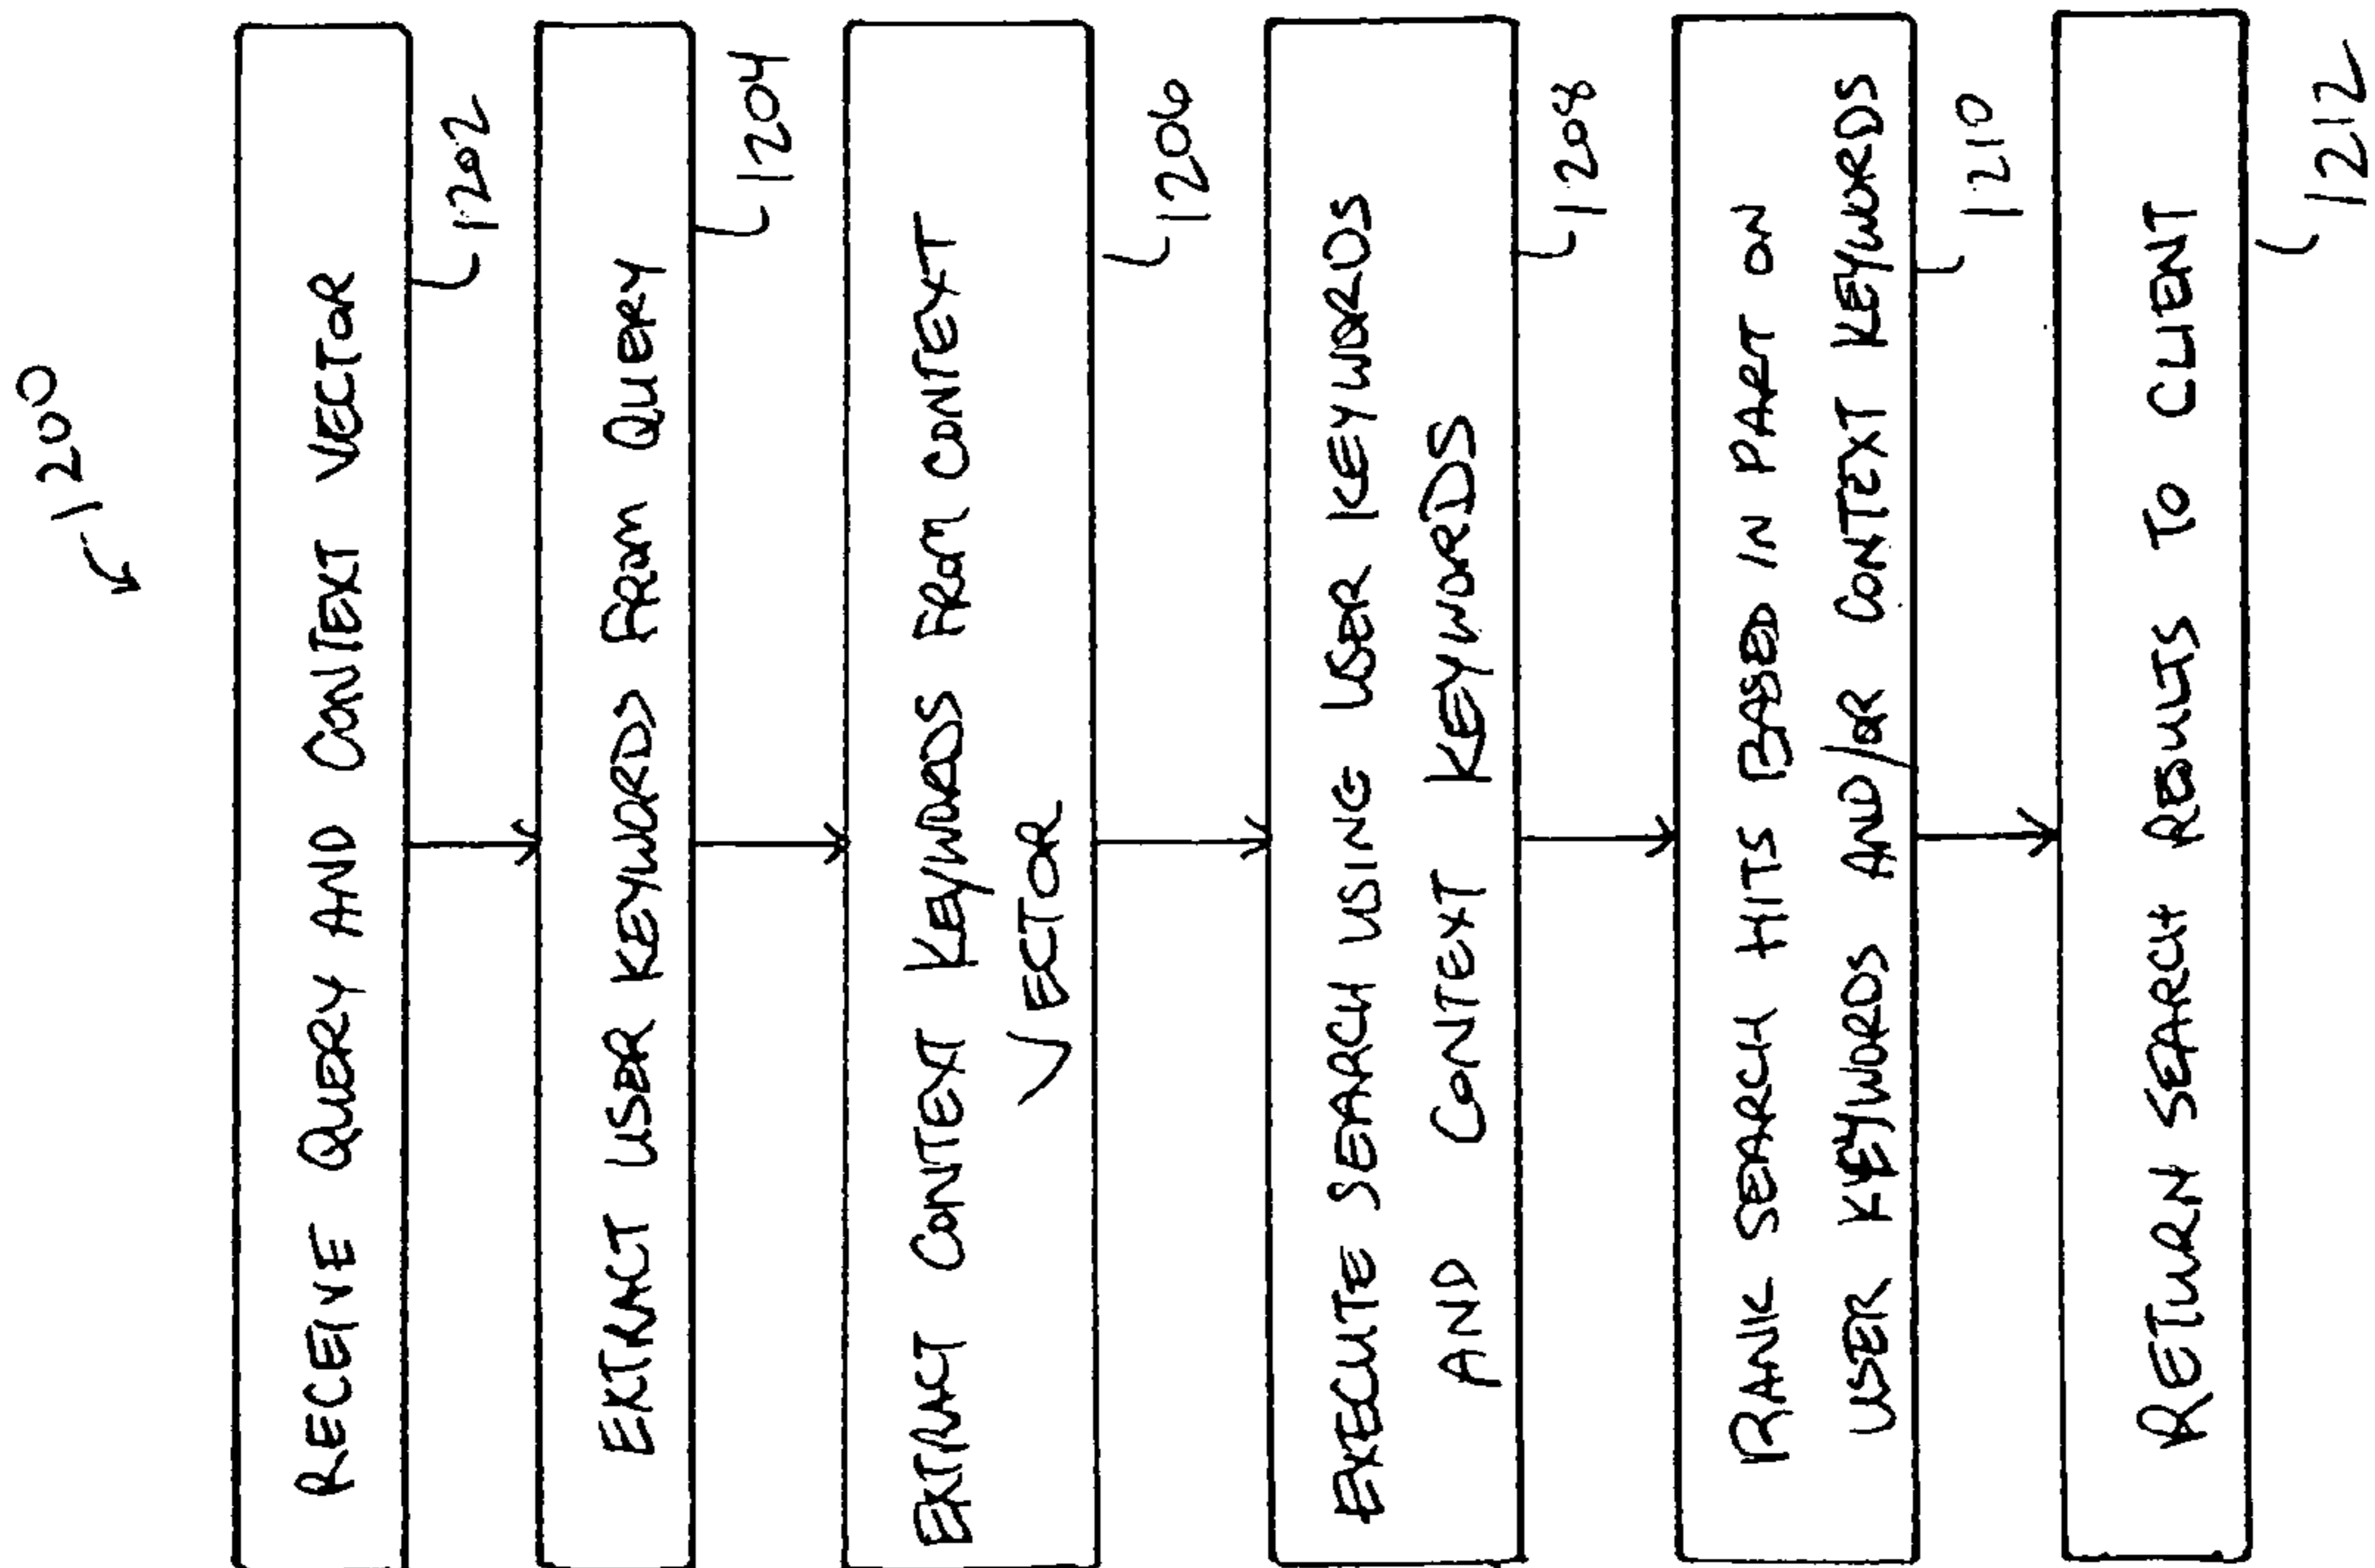 1200
RECEIVE QUERY AND CONTEXT VECTOR
1202
EXTRACT USER KEYWORDS FROM QUERY
1204
EXTRACT CONTEXT KEYWORDS FROM CONTEXT
VECTOR
1206
EXECUTE SEARCH USING USER KEYWORDS
AND CONTEXT KEYWORDS
1208
RANK SEARCH HITS BASED IN PART ON
USER KEYWORDS AND/OR CONTEXT KEYWORDS
1210
RETURN SEARCH RESULTS TO CLIENT
1212